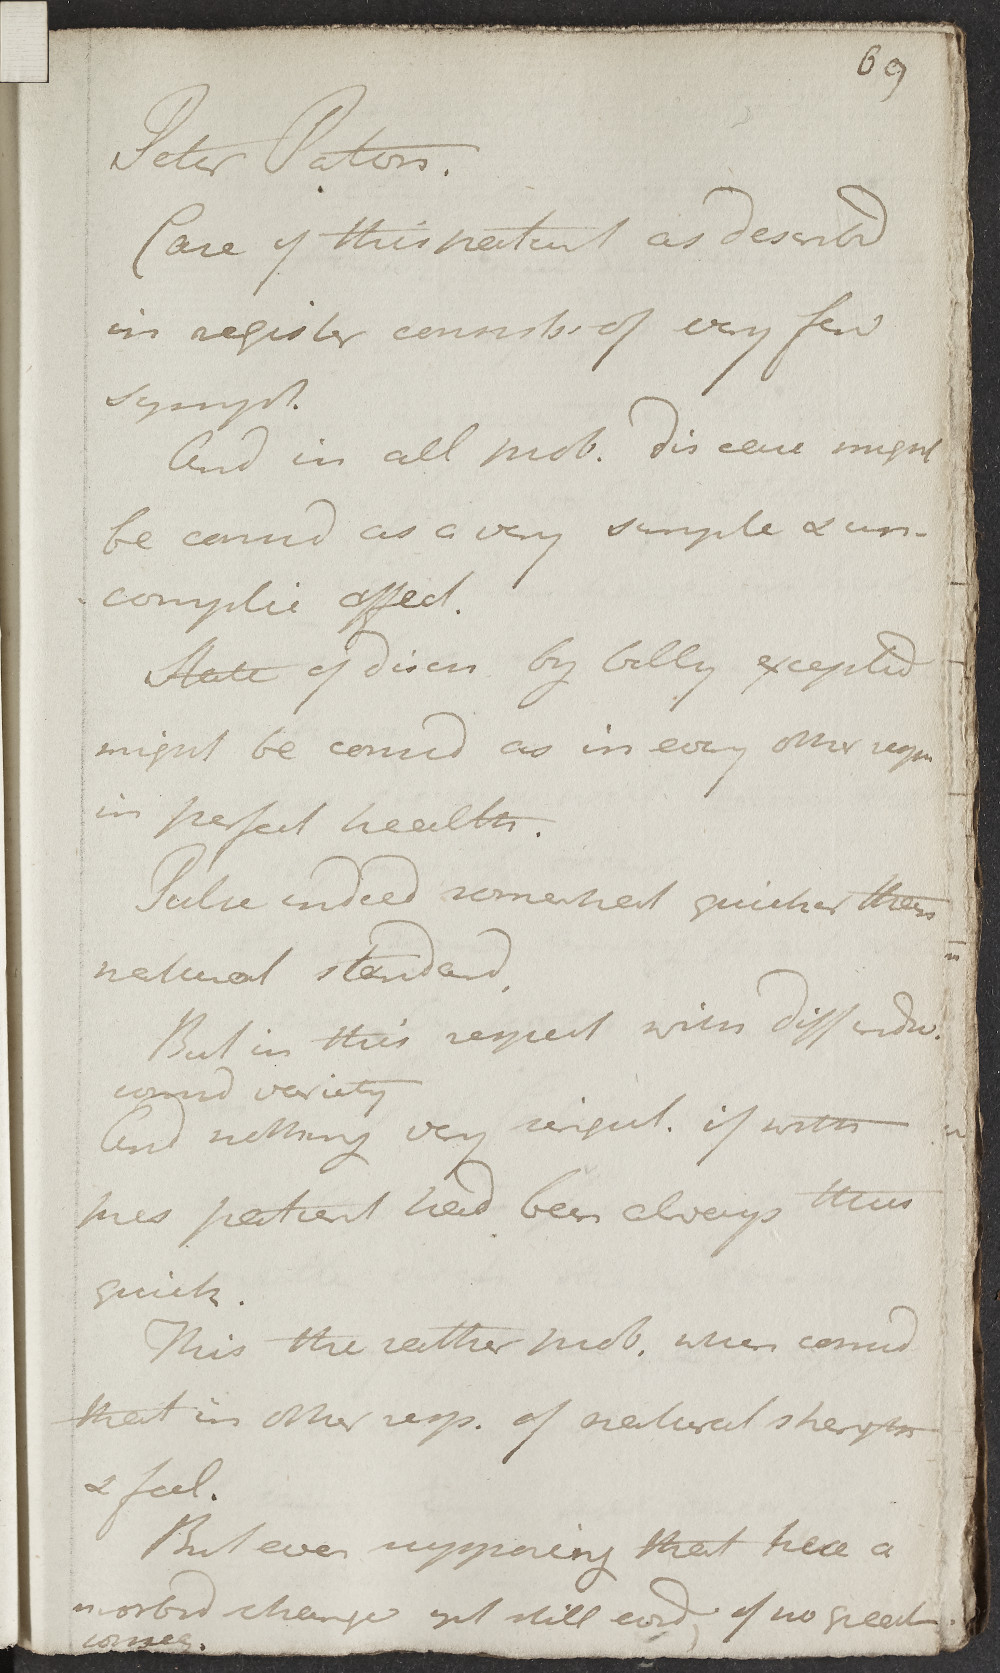 69
Peter Paton.
Case of this patient as describd
in register consists of very few
sympt.
And in all prob. disease might
be considd as a very simple & un-
complic affect.
State of disease by belly excepted
might be considd as in every other resp
in perfect health.
Pulse indeed somewhat quicker than
natural standard,
But in this respect with diff indiv.
considd variety
And nothing very singul. if with
this patient had been always thus
quick.
This the rather prob. when considd
that in other resp. of natural strength
& feel.
But even supposing that here a
morbid change yet still cord, of no great
conseq.